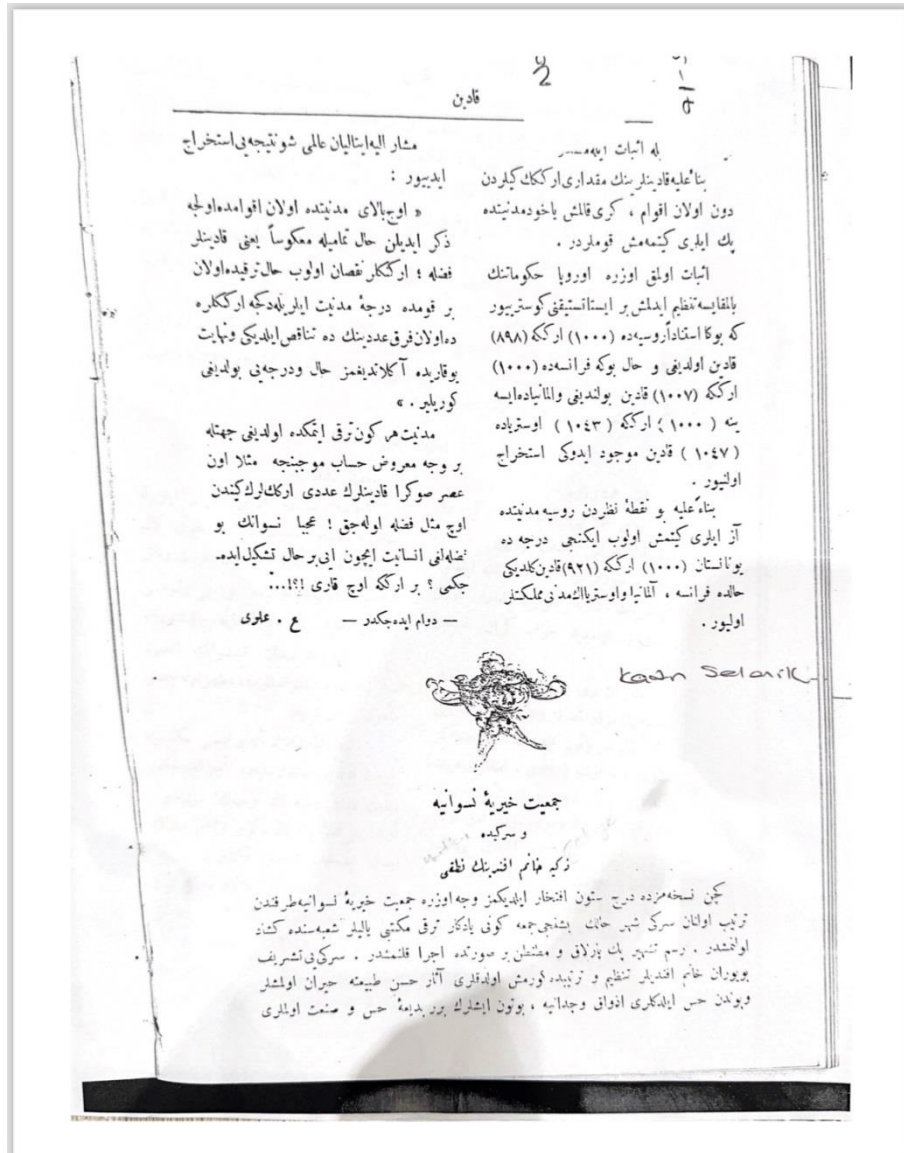 2
قادين
بله اثبات
بناءً عليه قادينلرينك مقدارى اركككيلردن
دون اولان اقوام ، كرى قالمش ياخود مدنيتده
پك ايلرى كيتمه‌مش قوملردر .
اثبات اولمق اوزره اوروپا حكوماتنك
بالمقايسه تنظيم ايدلمش بر ايستاتستيقنى كوستريبور
كه بوكا استناداً روسيه‌ده (١٠٠٠) ارككه (٨٩٨)
قادين اولديغى و حال بوكه فرانسه‌ده (١٠٠٠)
ارككه (١٠٠٧) قادين بولنديغى والمانياده‌ايسه
ينه ( ١٠٠٠ ) ارككه ( ١٠٤٣ ) اوستریاده
( ١٠٤٧ ) قادين موجود ايدوكى استخراج
اولنيور .
بناءً عليه بو نقطهٔ نظردن روسيه مدنيتده
آز ايلرى كيتمش اولوب ايكنجى درجه ده
يونانستان (١٠٠٠) ارككه (٩٢١) قادين كلديكى
حالده فرانسه ، آلمانيا واوستريا اك مدنى مملكتلر
اوليور .
مشار اليه ايتاليان عالمى شو نتيجه‌يى استخراج
ايدييور :
« اوج بالاى مدنيتده اولان اقوامده اولجه
ذكر ايديلن حال تماميله معكوساً يعنى قادينلر
فضله ؛ اركككلر نقصان اولوب حال ترقيده اولان
بر قومده درجهٔ مدنيت ايلريله‌دكجه اركككلره
ده اولان فرق عددينك ده تناقص ايلديكى ونهايت
يوقاريده آكلاتديغمز حال ودرجه‌يى بولديغى
كوريلير . »
مدنيت هر كون ترقى ايتمكده اولديغى جهتله
بر وجه معروض حساب موجبنجه مثلا اون
عصر صوكرا قادينلرك عددى اركككلرككيندن
اوچ مثل فضله اوله‌جق ! عجبا نسوانك بو
فضله‌لغى انسانيت ايچون ايى بر حال تشكيل ايده‌.
جكمى ؟ بر ارككه اوچ قارى !؟!...
— دوام ايده‌جكدر — ع . علوى
kadın Selanik
جمعيت خيريهٔ نسوانيه
و سركيده
زكيه خانم افندينك نطقى
كچن نسخه‌مزده درج ستون افتخار ايلديكمز وجه اوزره جمعيت خيريهٔ نسوانيه طرفندن
ترتيب اولنان سركى شهر حالك بشنجى جمعه كونى يادكار ترقى مكتبى ياليلر شعبه‌سنده كشاد
اولنمشدر . رسم پك پارلاق و مطنطن بر صورتده اجرا قلنمشدر . سركى‌يى تشريف
بويوران خانم افنديلر تنظيم و ترتيبده كورمش اولدقلرى آثار حسن طبيعته حيران اولمشلر
وبوندن حس ايلدكلرى اذواق وجدانيه ، بوتون ايشلرك برر بديعهٔ حس و صنعت اولملرى